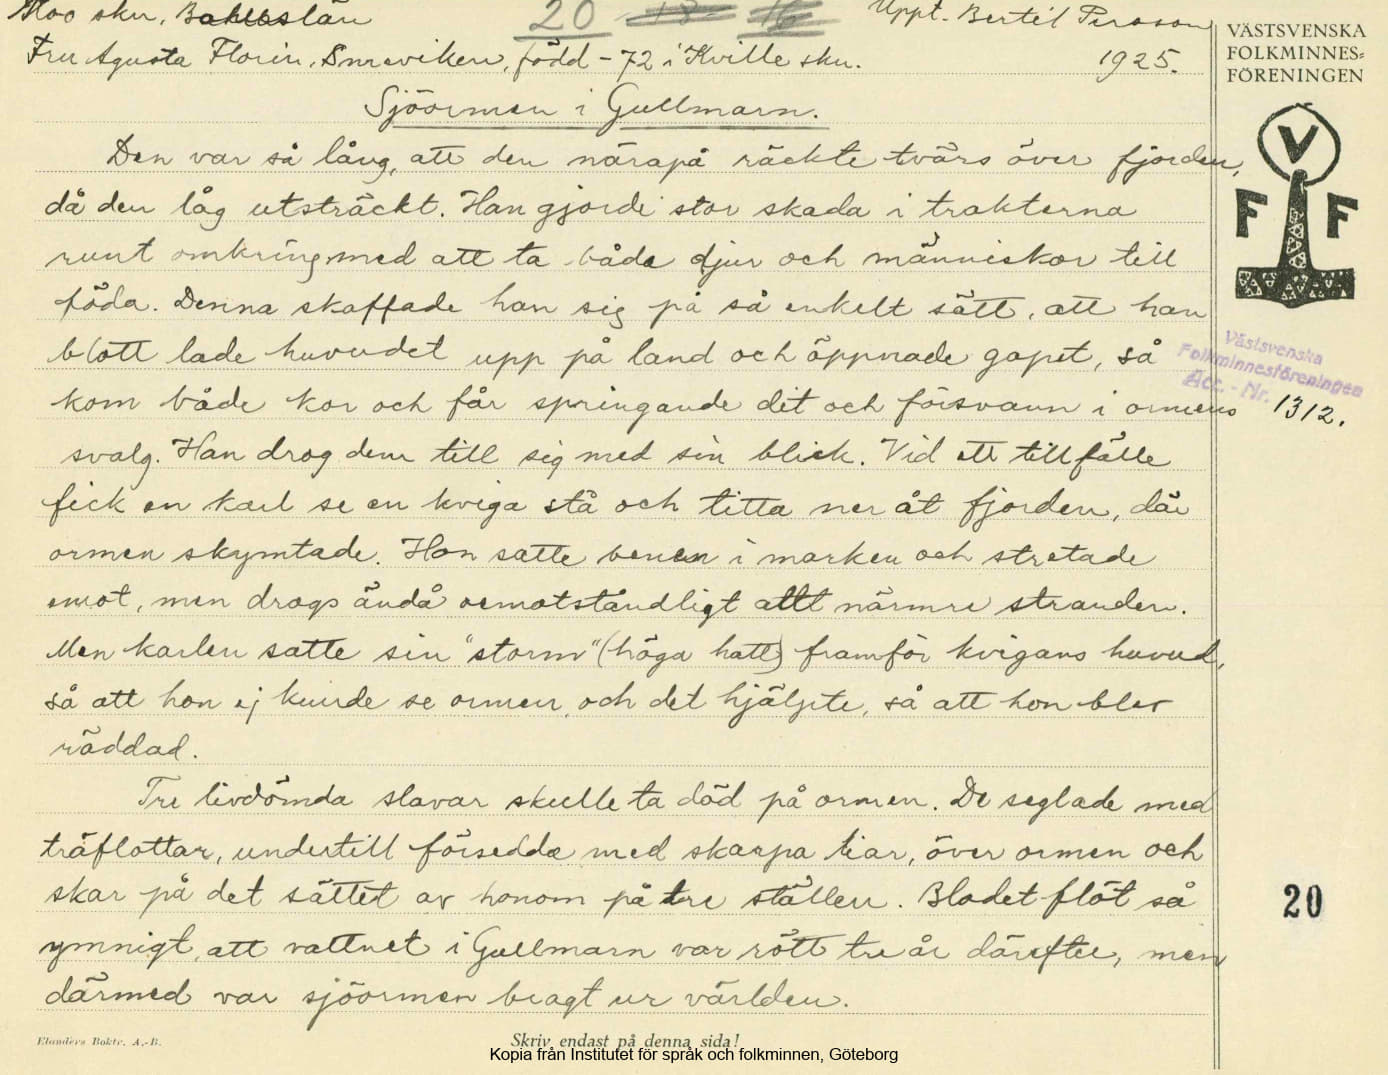 Moo skn, Bohuslän
20 18 16
Uppt. Bertil Persson
Fru Agusta Florin, Smreviken, född -72 i Kville skn.
1925.
VÄSTSVENSKA
FOLKMINNES=
FÖRENINGEN
Sjöormen i Gullmarn.
Den var så lång, att den närapå räckte tvärs över fjorden,
då den låg utsträckt. Han gjorde stor skada i trakterna
runt omkring med att ta både djur och människor till
föda. Denna skaffade han sig på så enkelt sätt, att han
blott lade huvudet upp på land och öppnade gapet, så
kom både kor och får springande dit och försvann i ormens
svalg. Han drog dem till sig med sin blick. Vid ett tillfälle
fick en karl se en kviga stå och titta ner åt fjorden, där
ormen skymtade. Hon satte benen i marken och stretade
emot, men drogs ändå oemotståndligt allt närmre stranden.
Men karlen satte sin "storm" (höga hatt) framför kvigans huvud,
så att hon ej kunde se ormen, och det hjälpte, så att hon blev
räddad.
Tre livdömda slavar skulle ta död på ormen. De seglade med
träflottar, undertill försedda med skarpa liar, över ormen och
skar på det sättet av honom på tre ställen. Blodet flöt så
ymnigt, att vattnet i Gullmarn var rött tre år därefter, men
därmed var sjöormen bragt ur världen.
V
F F
Västsvenska
Folkminnesföreningen
Acc. - Nr. 1312.
20
Elanders Boktr. A.-B.
Skriv endast på denna sida!
Kopia från Institutet för språk och folkminnen, Göteborg